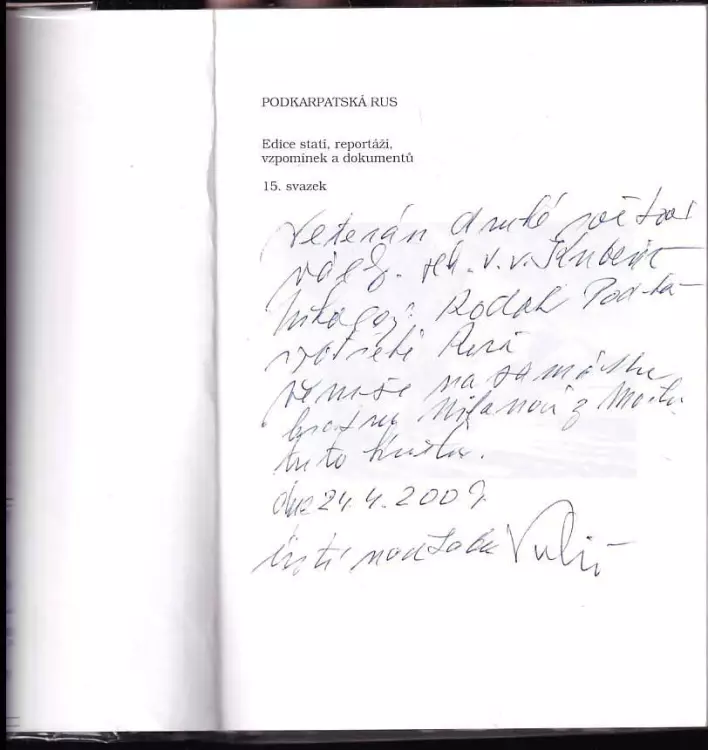 PODKARPATSKÁ RUS
Edice statí, reportáží,
vzpomínek a dokumentů
15. svazek
Veterán druhé světové
války. v.v.
Rodák Podka-
Rusi
věnuje na památku
bratru Milanovi z Mostu
tuto knihu.
dne 24.4.2009.
Ústí nad Labem